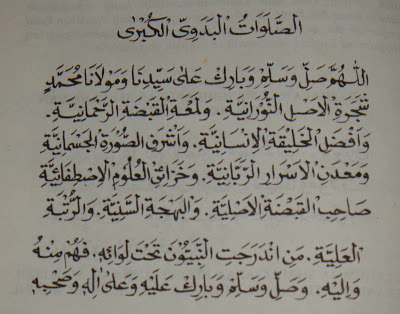 الصَّلَوَاتُ الْبَدَوِيِّ الْكُبْرٰى
اَللّٰهُمَّ صَلِّ وَسَلِّمْ وَبَارِكْ عَلٰى سَيِّدِنَا وَمَوْلَانَا مُحَمَّدٍ
شَجَرَةِ الْاَصْلِ النُّوْرَانِيَّةِ. وَلَمْعَةِ الْقَبْضَةِ الرَّحْمَانِيَّةِ.
وَاَفْضَلِ الْخَلِيْقَةِ الْاِنْسَانِيَّةِ. وَاَشْرَفِ الصُّوْرَةِ الْجِسْمَانِيَّةِ
وَمَعْدِنِ الْاَسْرَارِ الرَّبَّانِيَّةِ. وَخَزَائِنِ الْعُلُوْمِ الْاِصْطِفَائِيَّةِ
صَاحِبِ الْقَبْضَةِ الْاَصْلِيَّةِ. وَالْبَهْجَةِ السَّنِيَّةِ. وَالرُّتْبَةِ
الْعَلِيَّةِ. مَنِ انْدَرَجَتِ النَّبِيُّوْنَ تَحْتَ لِوَائِهِ. فَهُمْ مِنْهُ
وَاِلَيْهِ. وَصَلِّ وَسَلِّمْ وَبَارِكْ عَلَيْهِ وَعَلٰى اٰلِهِ وَصَحْبِهِ